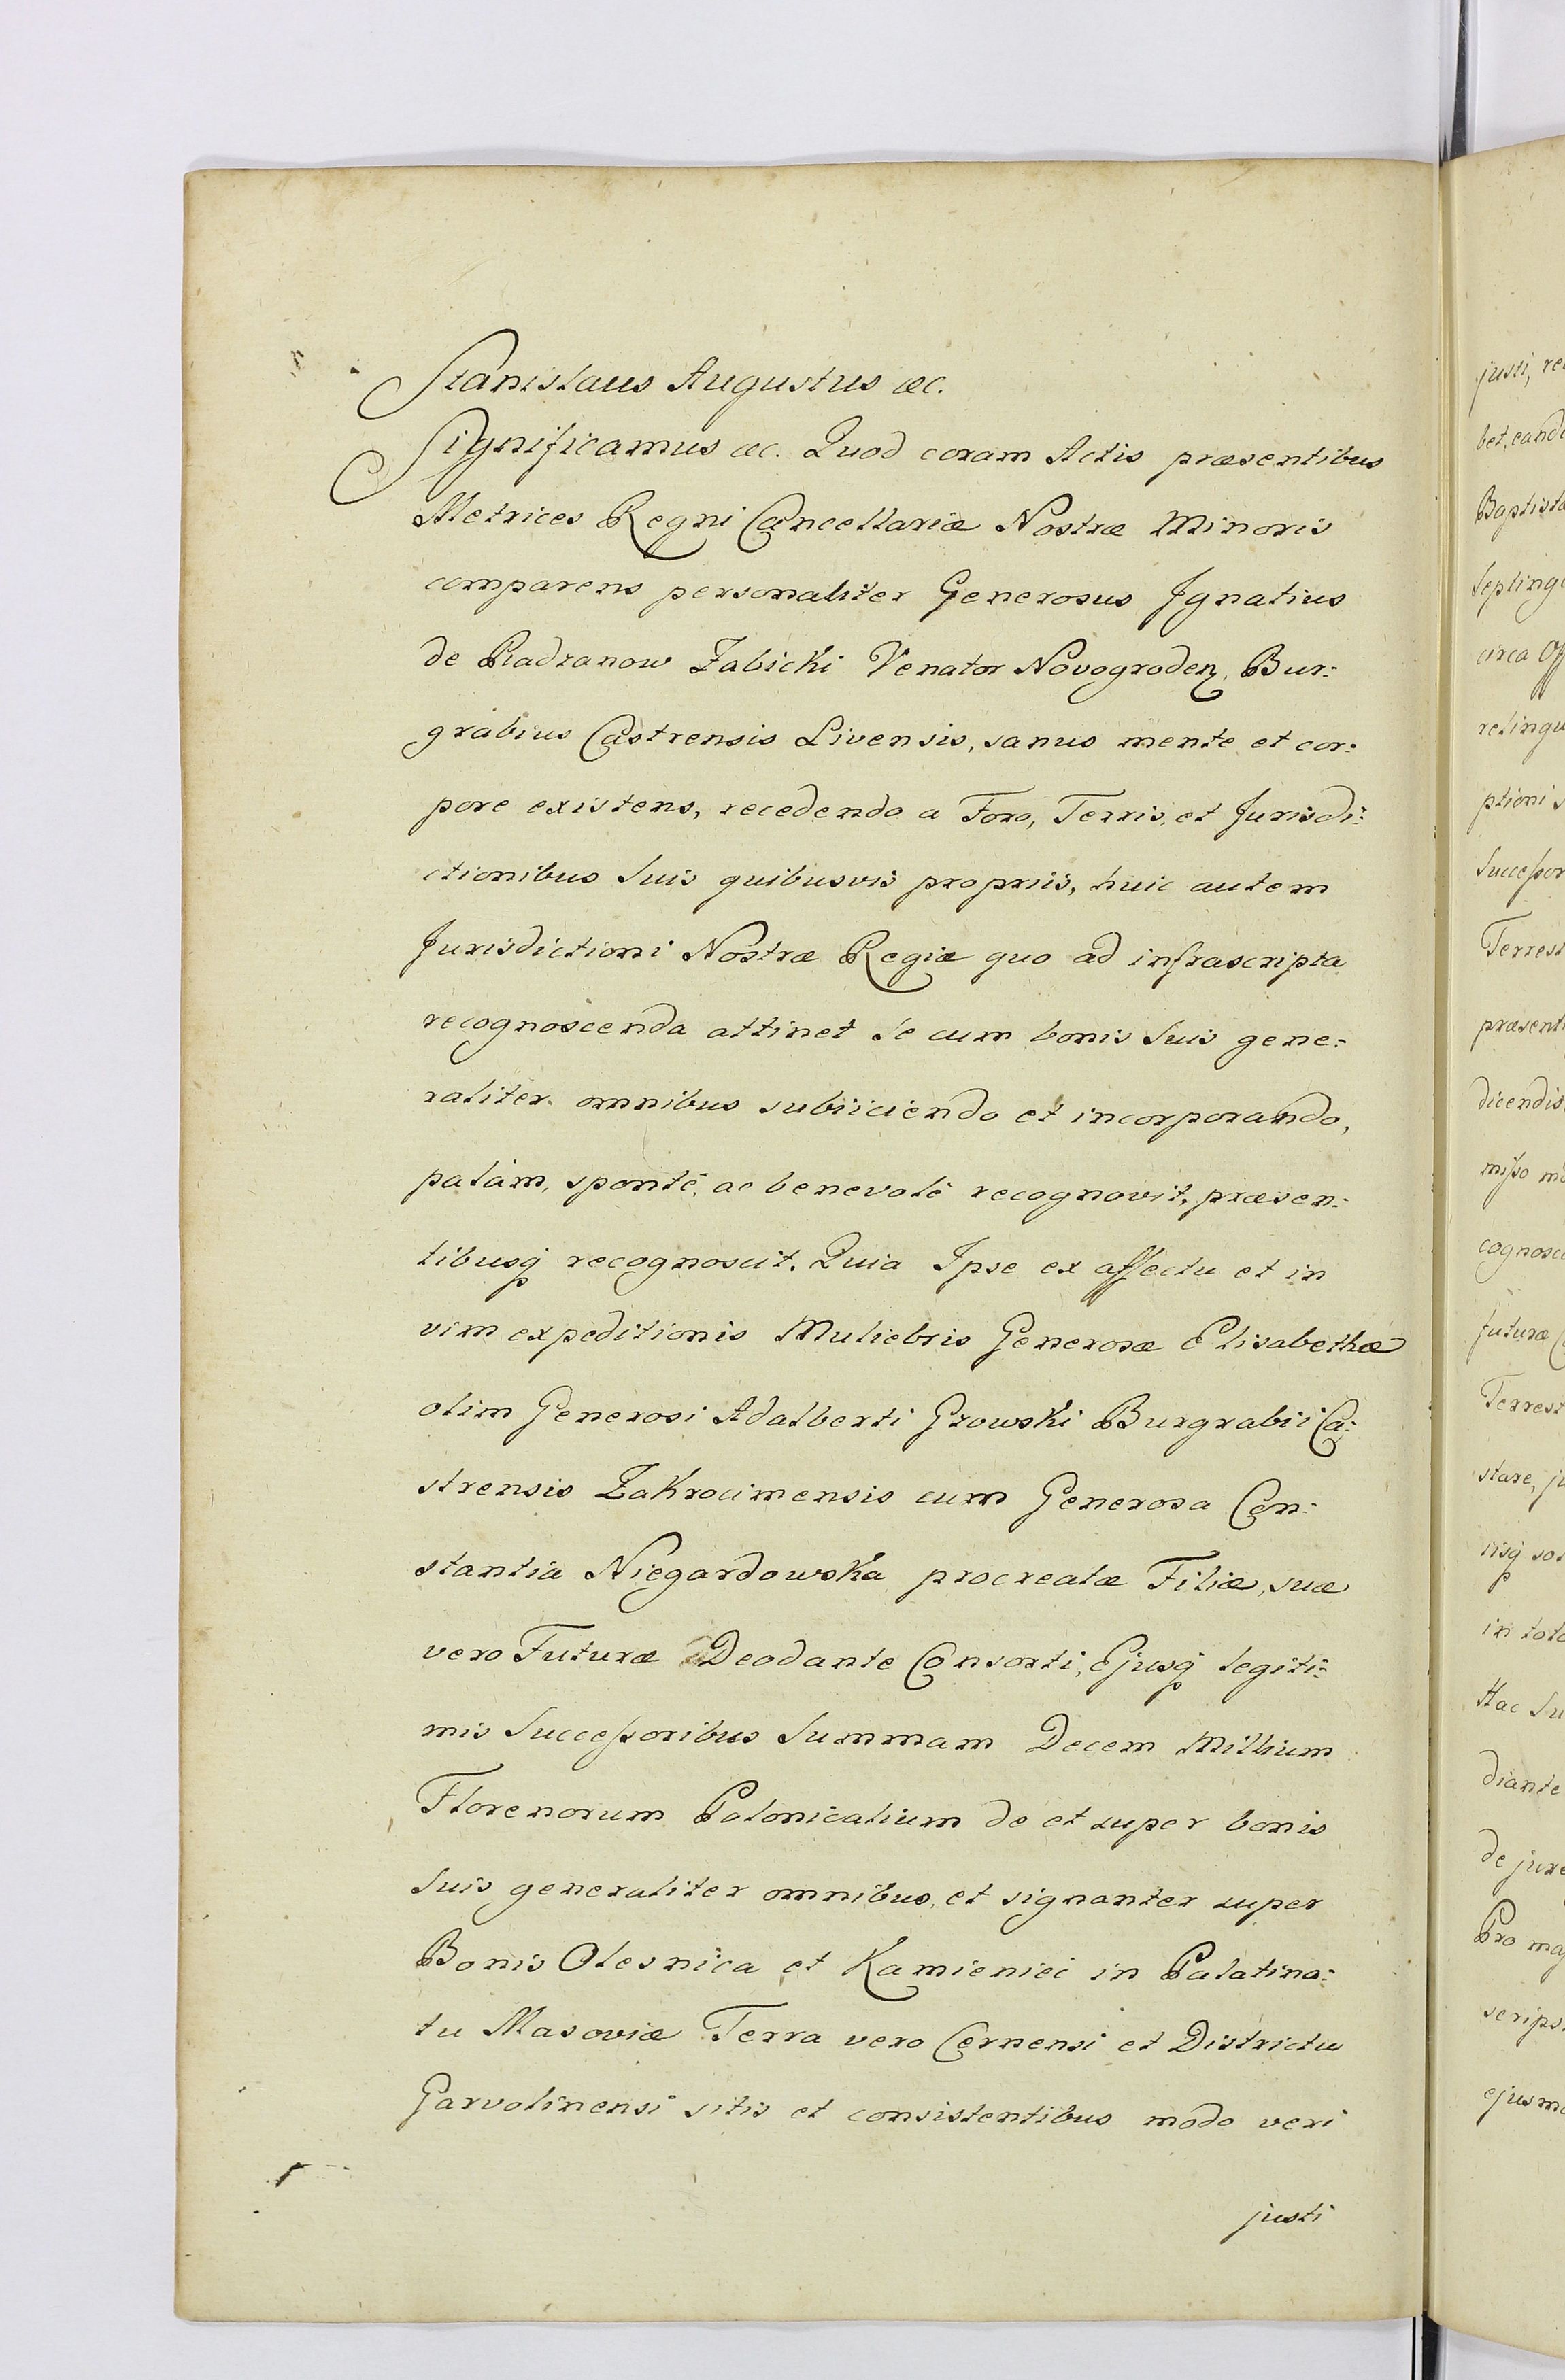 Stanislaus Augustus &c.
Significamus &c. Quod coram Actis præsentibus
Metrices Regni Cancellariæ Nostræ Minoris
comparens personaliter Generosus Ignatius
de Radzanow Zabicki Venator Novograden, Bur:
grabius Castrensis Livensis, sanus mente et cor:
pore existens, recedendo a Foro, Terris, et Jurisdi:
ctionibus Suis quibusvis propriis, huic autem
Jurisdictioni Nostræ Regiæ quo ad infrascripta
recognoscenda attinet Se cum bonis Suis gene:
raliter omnibus subiiciendo et incorporando,
palàm, spontè, ac benevolè recognovit, præsen:
tibusq recognoscit. Quia Ipse ex affectu et in
vim expeditionis Muliebris Generosæ Elisabethæ
olim Generosi Adalberti Gzowski Burgrabii Ca:
strensis Zakrocimensis cum Generosa Con:
stantia Niegardowska procreatæ Filiæ, suæ
vero Futuræ Deodante Consorti, Ejusq legiti:
mis Successoribus Summam Decem Millium
Florenorum Polonicalium de et super bonis
Suis generaliter omnibus, et signanter super
Bonis Olesnica et Kamieniec in Palatina:
tu Masoviæ Terra vero Cernensi et Districtu
Garvolinensi sitis et consistentibus modo veri
justi
justi,
Baptista
circa
Terrest
præsent
dicendis
futuræ
Terrest
stare,
in
Hac
diante
de jure
Pro